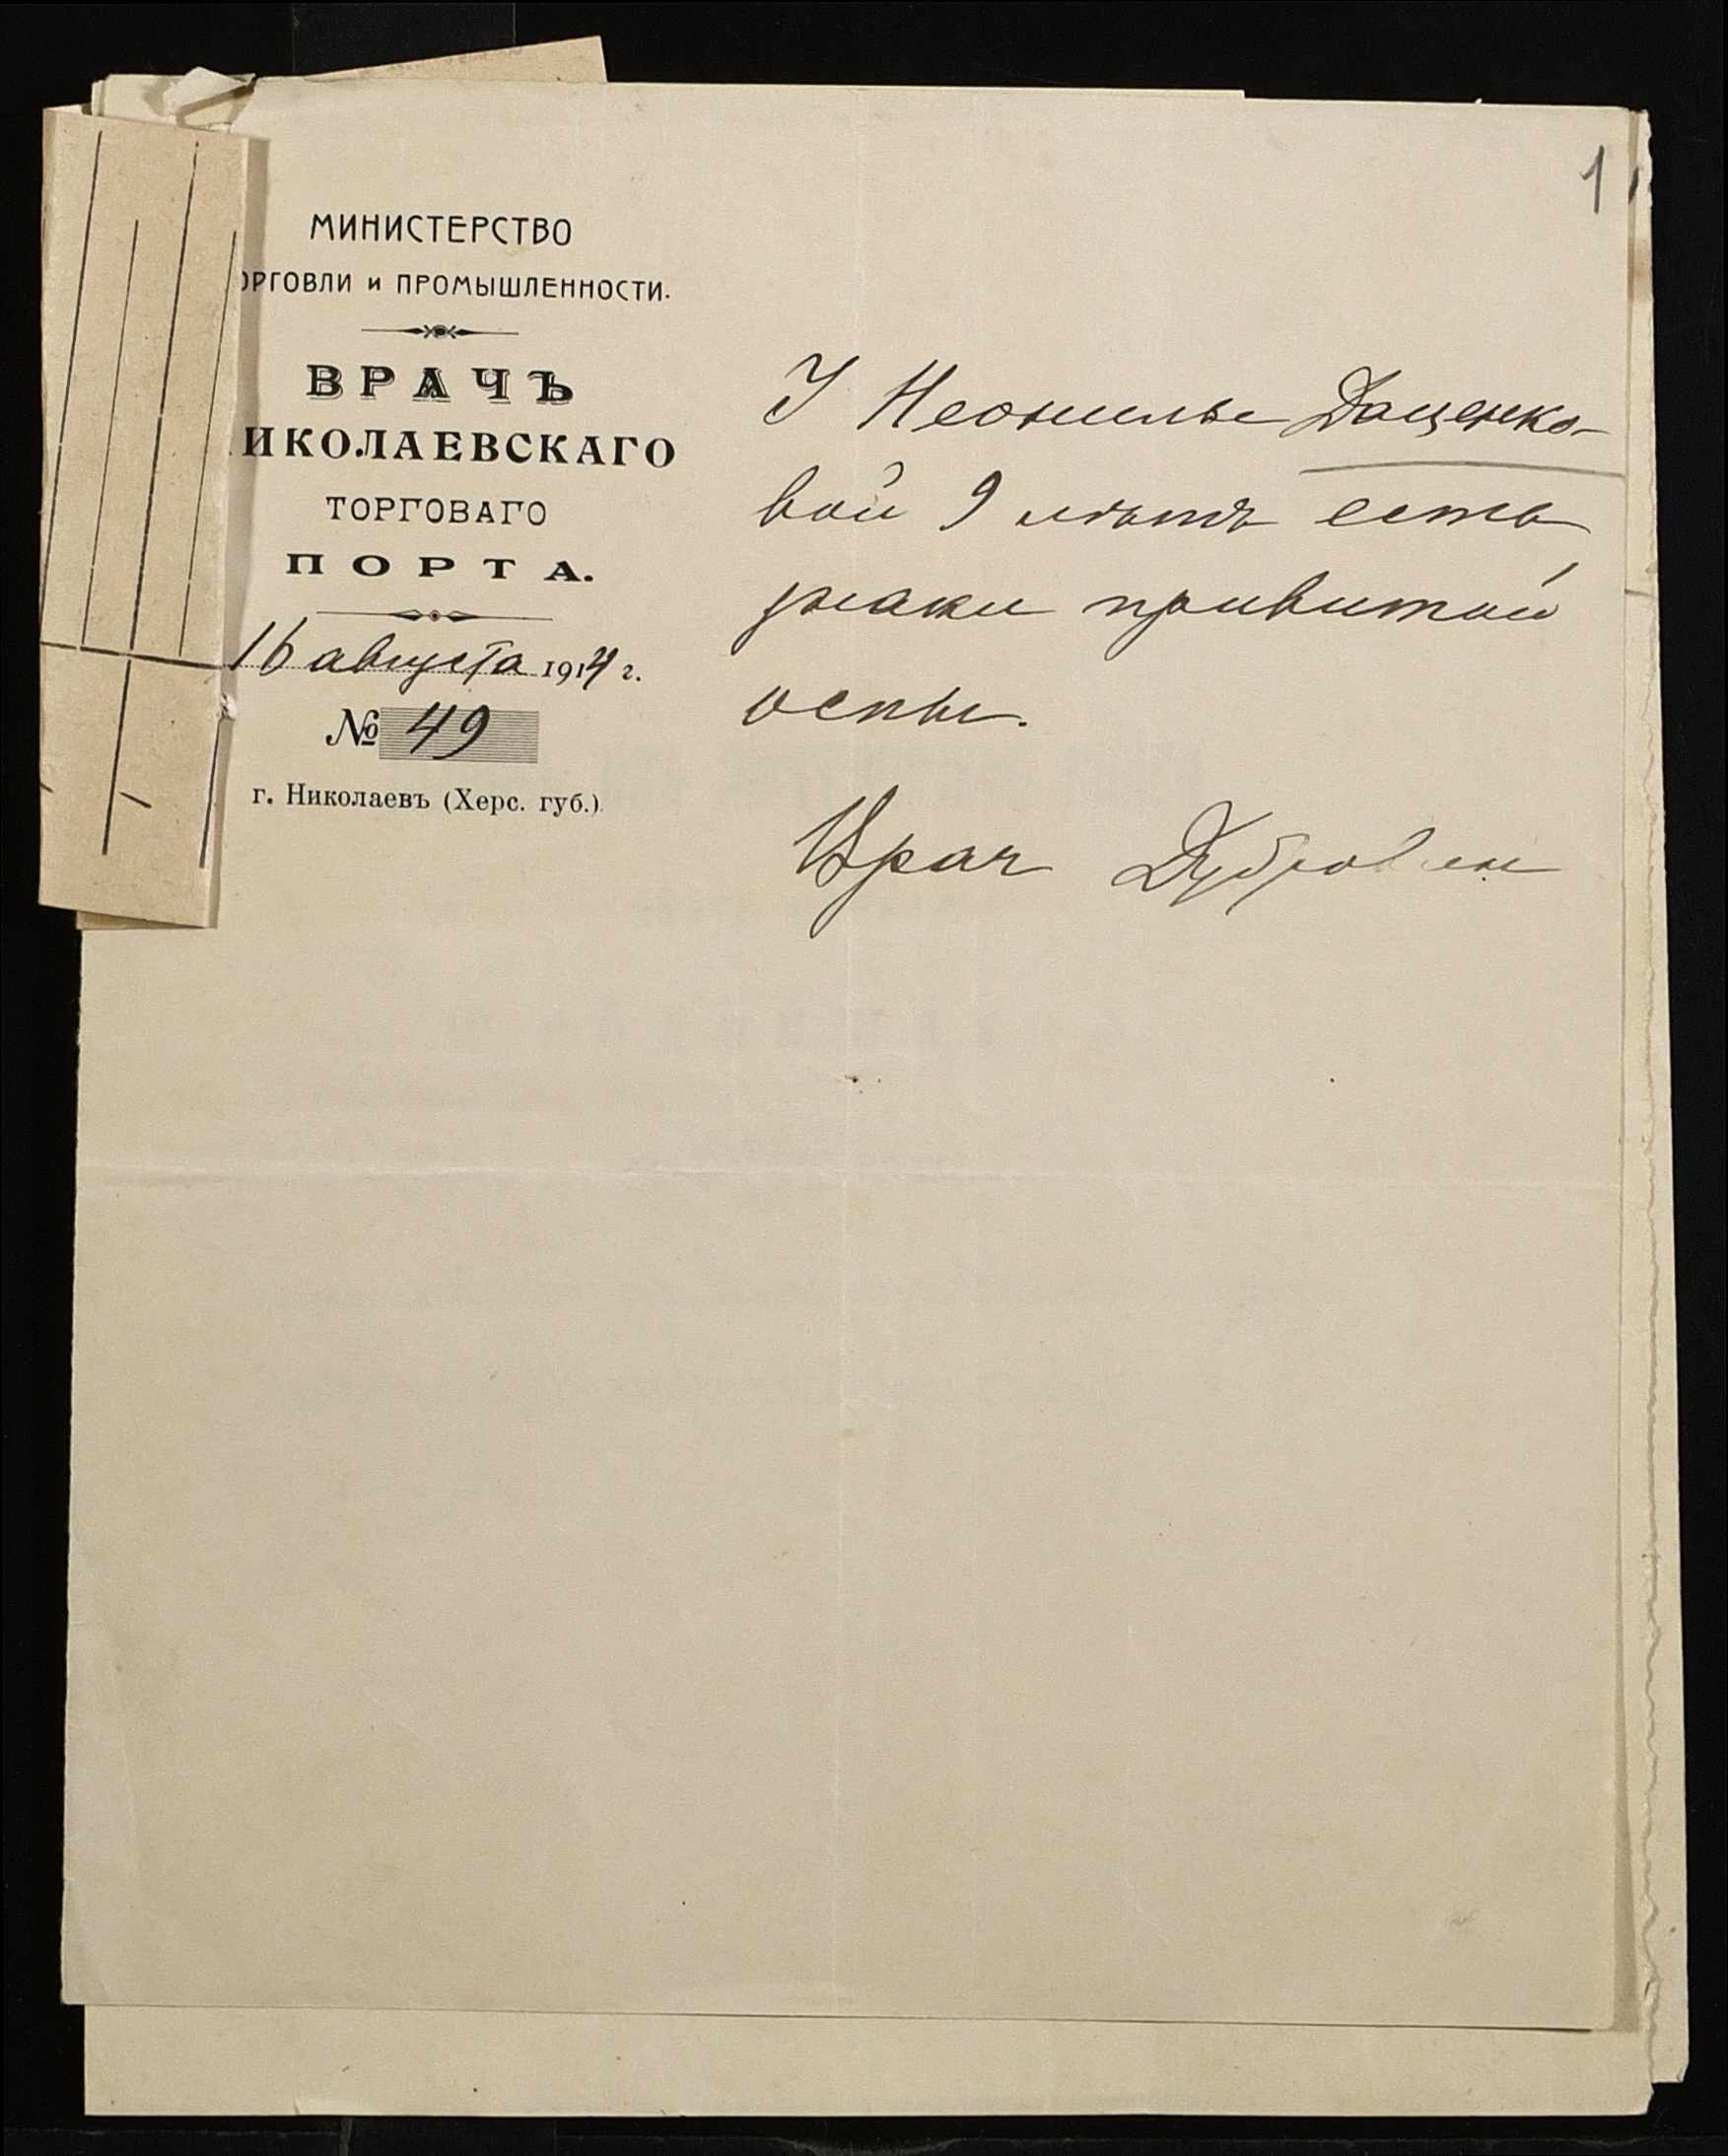 1
МИНИСТЕРСТВО
ОРГОВЛИ и ПРОМЫШЛЕННОСТИ.
ВРАЧЪ
ИКОЛАЕВСКАГО
ТОРГОВАГО
ПОРТА.
16 августа 1914 г.
№ 49
г. Николаевъ (Херс. губ.)
У Неонилы Даценко-
вой 9 лѣтъ есть
знаки привитой
оспы.
Врач Дубровин